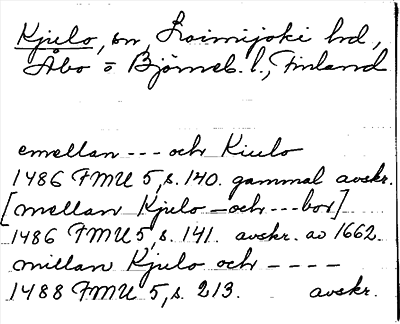 Kjulo, sn, Loimijoki hd,
Åbo o Björneb. l., Finland
emellan --- och Kiulo
1486 FMU 5, s. 140. gammal avskr.
[mellan Kjulo - och --- bor]
1486 FMU 5, s. 141. avskr. av 1662.
millan Kjulo och - - - -
1488 FMU 5, s. 213. avskr.